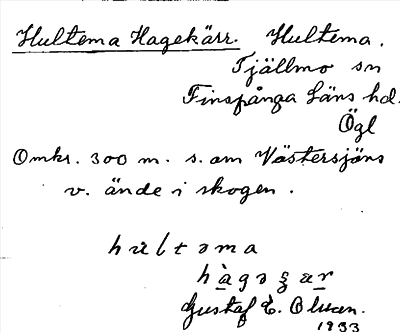 Hultema Hagekärr. Hultema.
Tjällmo sn
Finspånga läns hd.
Ögl
Omkr. 300 m. s. om Västersjöns
v. ände i skogen.
hultəma
hagə
Gustaf E.
1933